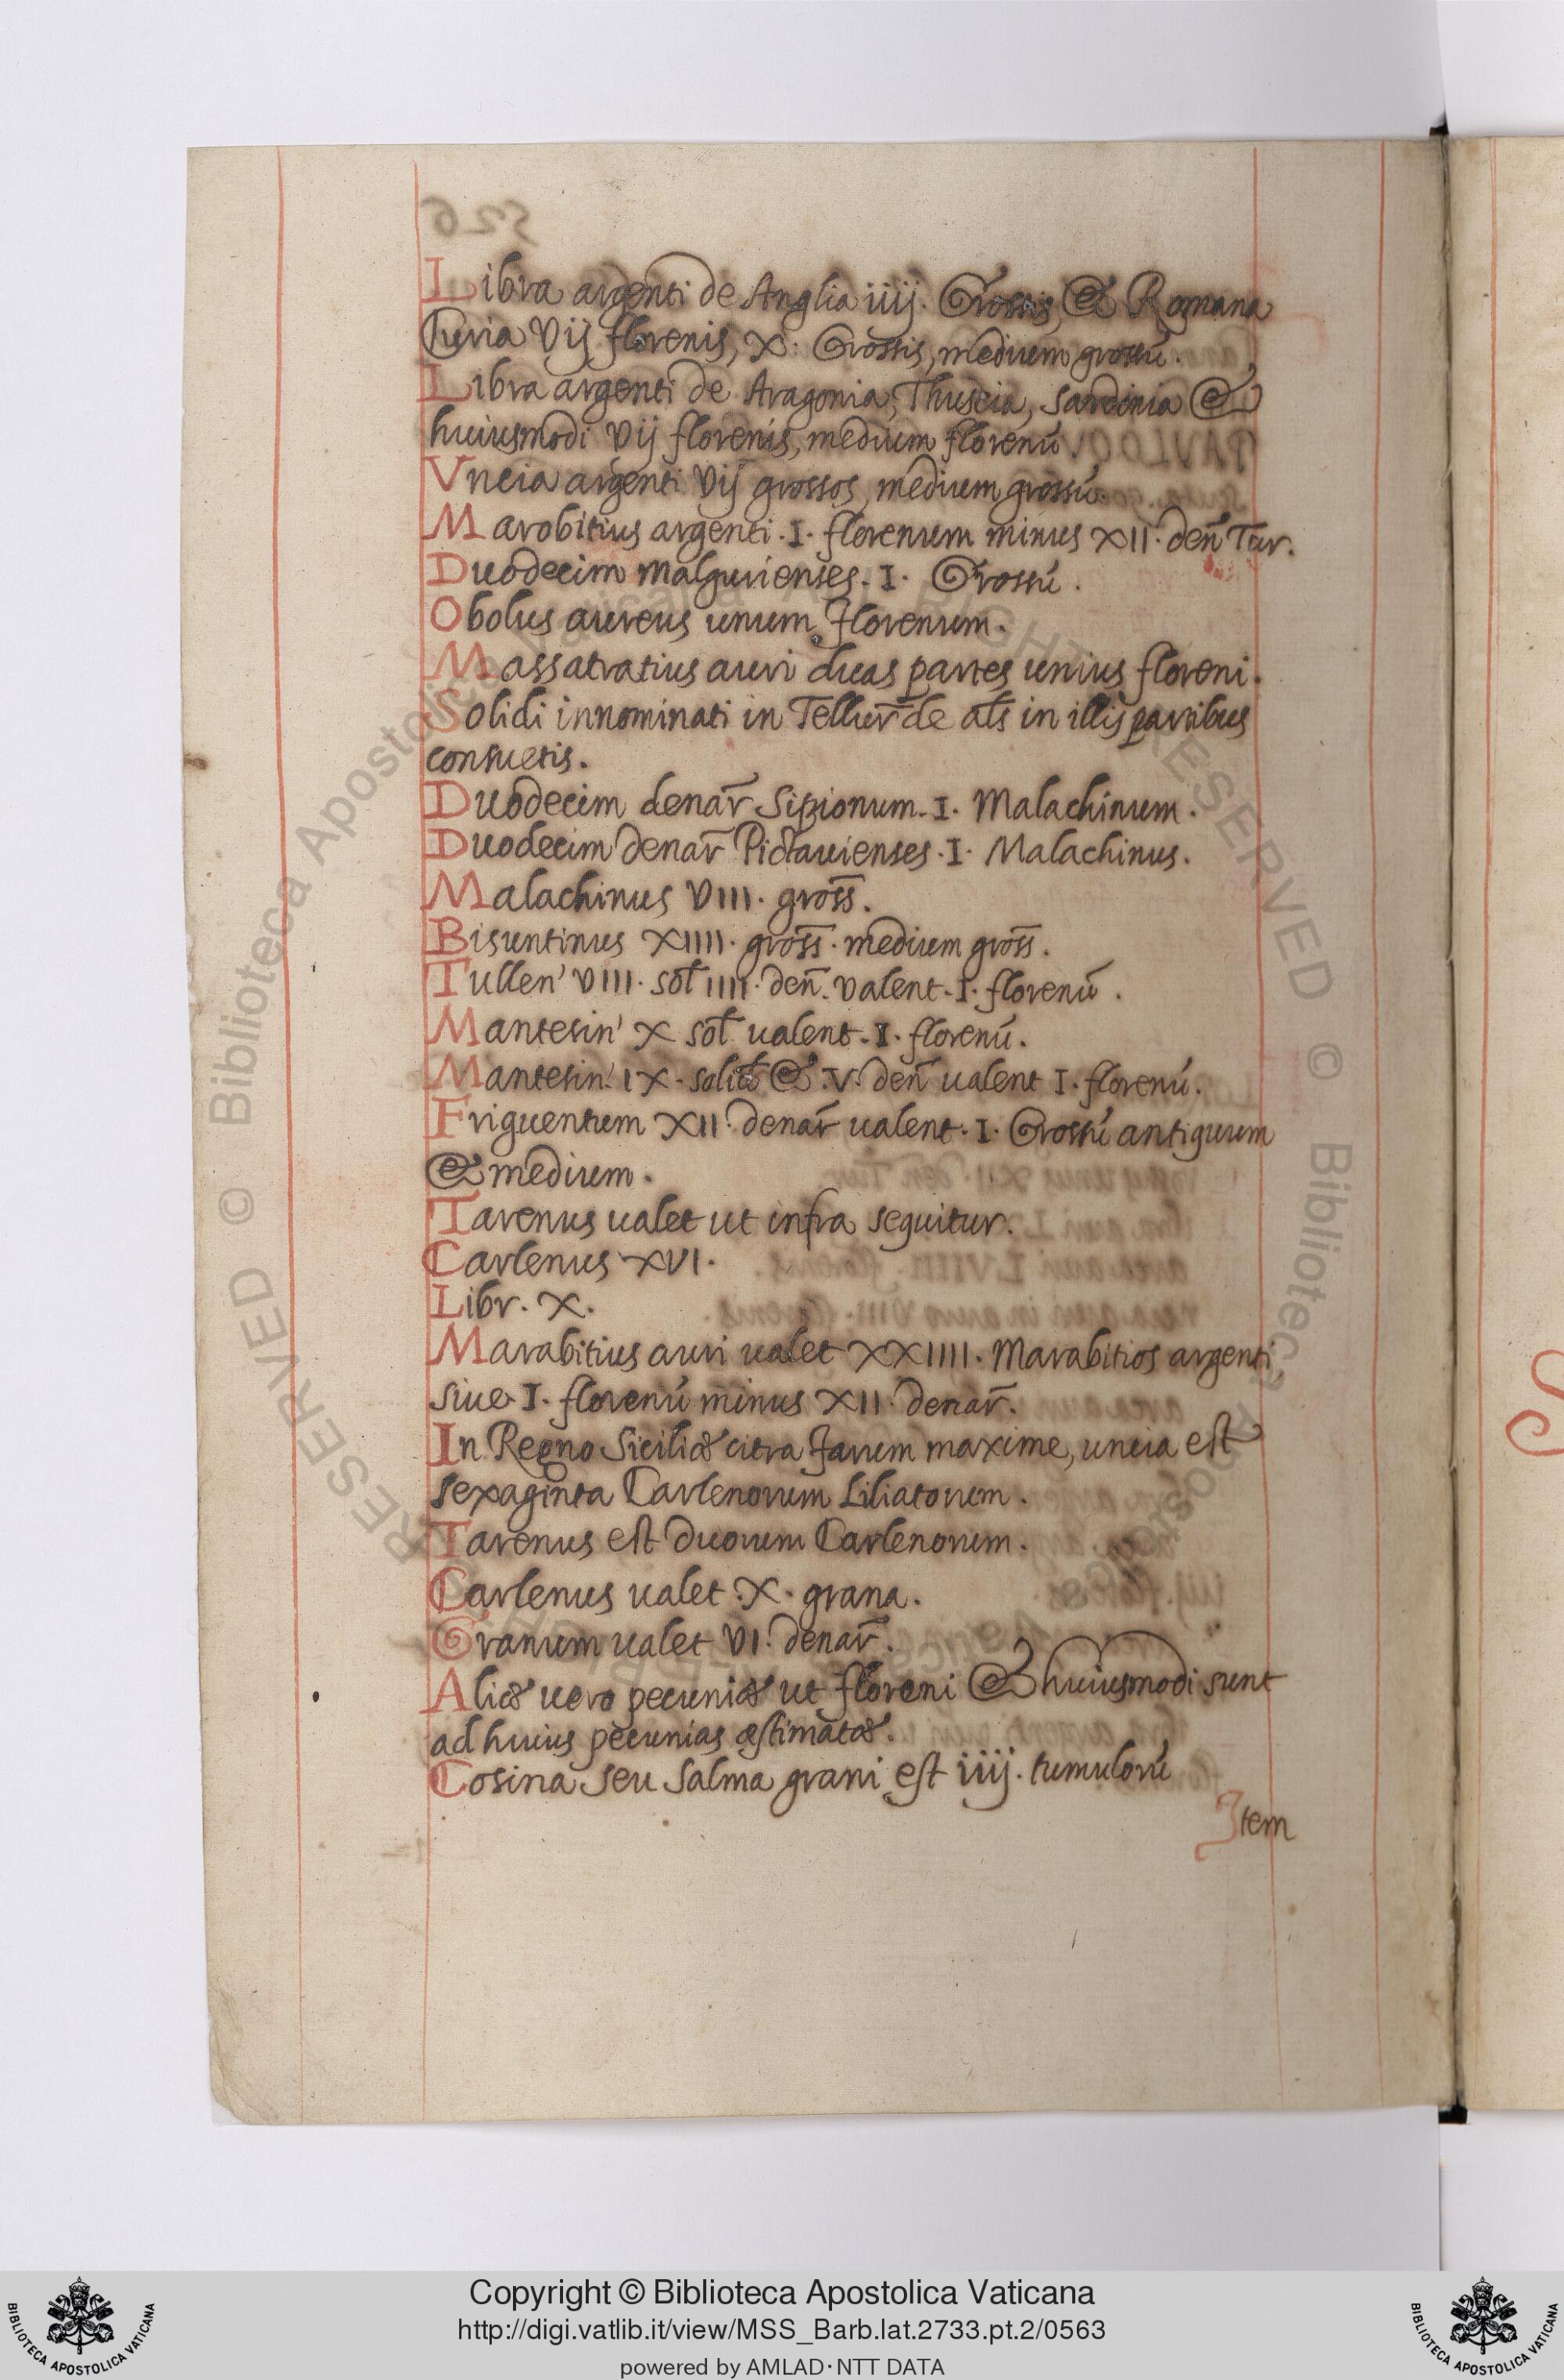 Libra argenti de Anglia iiij. Grossis, & Romana
Curia Vij florenis, X. Grossis, medium grossū.
Libra argenti de Aragonia, Thuscia, Sardinia &
huiusmodi Vij florenis, medium florenū.
Vncia argenti Vij grossos, medium grossū.
Marobitius argenti .I. florenum minus XII. deñ Tur.
Duodecim malgurienses .I. Grossū.
Obolus aureus unum florenum.
Massatratius auri duas partes unius floreni.
Solidi innominati in Tellur̃ de als̃ in illis partibus
consuetis.
Duodecim denar̃ Sipionum .I. Malachinum.
Duodecim denar̃ Pictauienses .I. Malachinus.
Malachinus VIII. gross̄.
Bisuntinus XIIII. gross̄. medium gross̄.
Tullen' VIII. sol̃ IIII. deñ. valent .I. florenū.
Mantesin' X sol̃ ualent .I. florenū.
Mantesin' IX. solid̃ & .V. deñ ualent I. florenū.
Friguentum XII. denar̃ ualent .I. Grossū antiquum
& medium.
Tarenus ualet ut infra sequitur.
Carlenus XVI.
Libr. X.
Marabitius auri ualet XXIIII. Marabitios argenti
siue .I. florenū minus XII. denar̃.
In Regno Siciliæ citra Farum maxime, uncia est
sexaginta Carlenorum Liliatorum.
Tarenus est duorum Carlenorum.
Carlenus ualet .X. grana.
Granum ualet VI. denar̃.
Aliæ uero pecuniæ ut floreni & huiusmodi sunt
ad huius pecunias æstimatæ.
Cosina seu Salma grani est iiij. tumulorū
Item
Copyright © Biblioteca Apostolica Vaticana
http://digi.vatlib.it/view/MSS_Barb.lat.2733.pt.2/0563
powered by AMLAD·NTT DATA
BIBLIOTECA APOSTOLICA VATICANA
BIBLIOTECA APOSTOLICA VATICANA